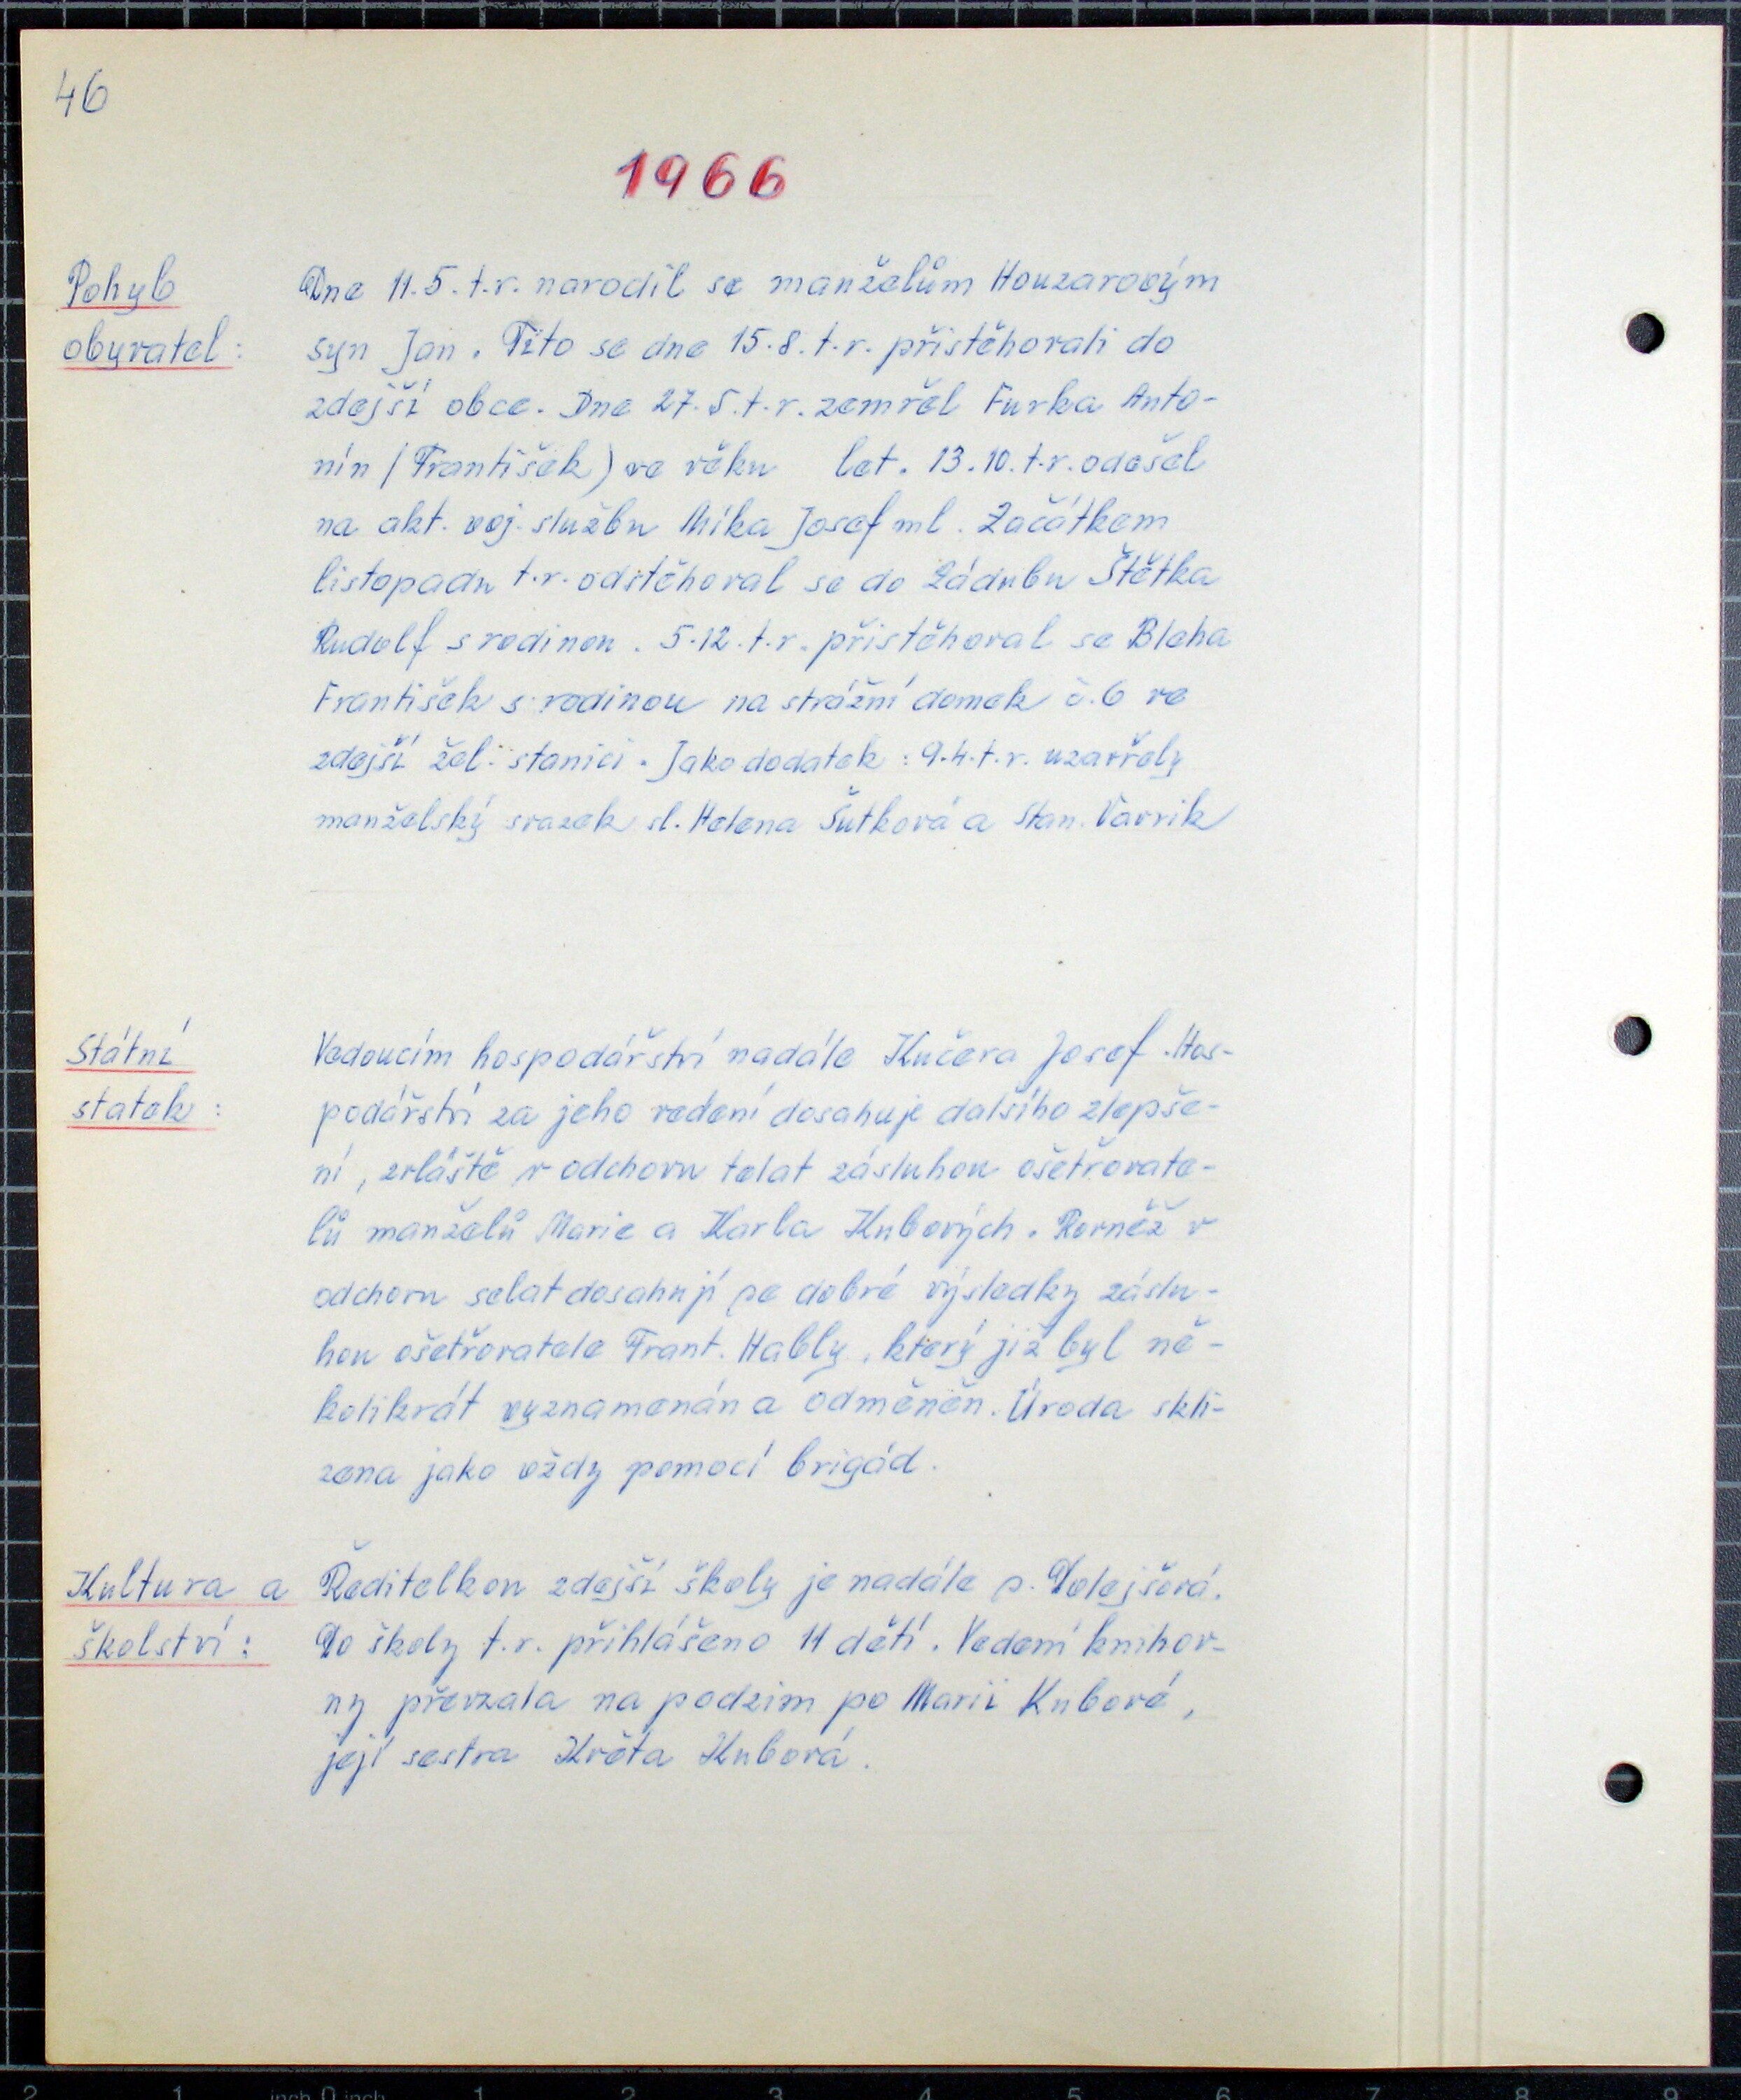 46
1966
Pohyb
obyvatel:
Dne 11.5.t.r. narodil se manželům Houzarovým
syn Jan. Tito se dne 15.8.t.r. přistěhovali do
zdejší obce. Dne 27.5.t.r. zemřel Furka Anto-
nín (František) ve věku let. 13.10.t.r. odešel
na akt. voj. službu Míka Josef ml. Začátkem
listopadu t.r. odstěhoval se do Zádubu Štětka
Rudolf s rodinou. 5.12.t.r. přistěhoval se Bleha
František s rodinou na strážní domek č.6 ve
zdejší žel. stanici. Jako dodatek: 9.4.t.r. uzavřely
manželský svazek sl. Helena Šutková a Stan. Vavrik
Státní
statek:
Vedoucím hospodářství nadále Kučera Josef. Hos-
podářství za jeho vedení dosahuje dalšího zlepše-
ní, zvláště v odchovu telat zásluhou ošetřovate-
lů manželů Marie a Karla Kubových. Rovněž v
odchovu selat dosahují se dobré výsledky záslu-
hou ošetřovatele Frant. Hably, který již byl ně-
kolikrát vyznamenán a odměněn. Úroda skli-
zena jako vždy pomocí brigád.
Kultura a
školství:
Ředitelkou zdejší školy je nadále s. Dolejšová.
Do školy t.r. přihlášeno 11 dětí. Vedení knihov-
ny převzala na podzim po Marii Kubové,
její sestra Květa Kubová.
2 1 inch 0 inch 1 2 3 4 5 6 7 8 9